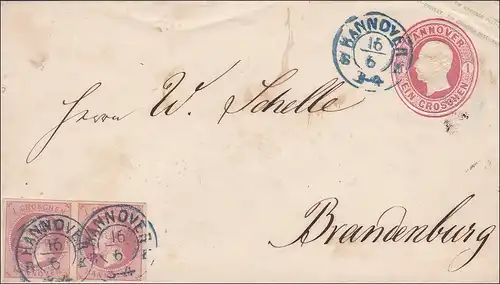 HANNOVER
16
6
3-4
HANNOVER
1
1
EIN GROSCHEN
Herrn W. Schelle
Brandenburg
1 GROSCHEN
HANNOVER
16
6
HANNOVER
16
6
3-4